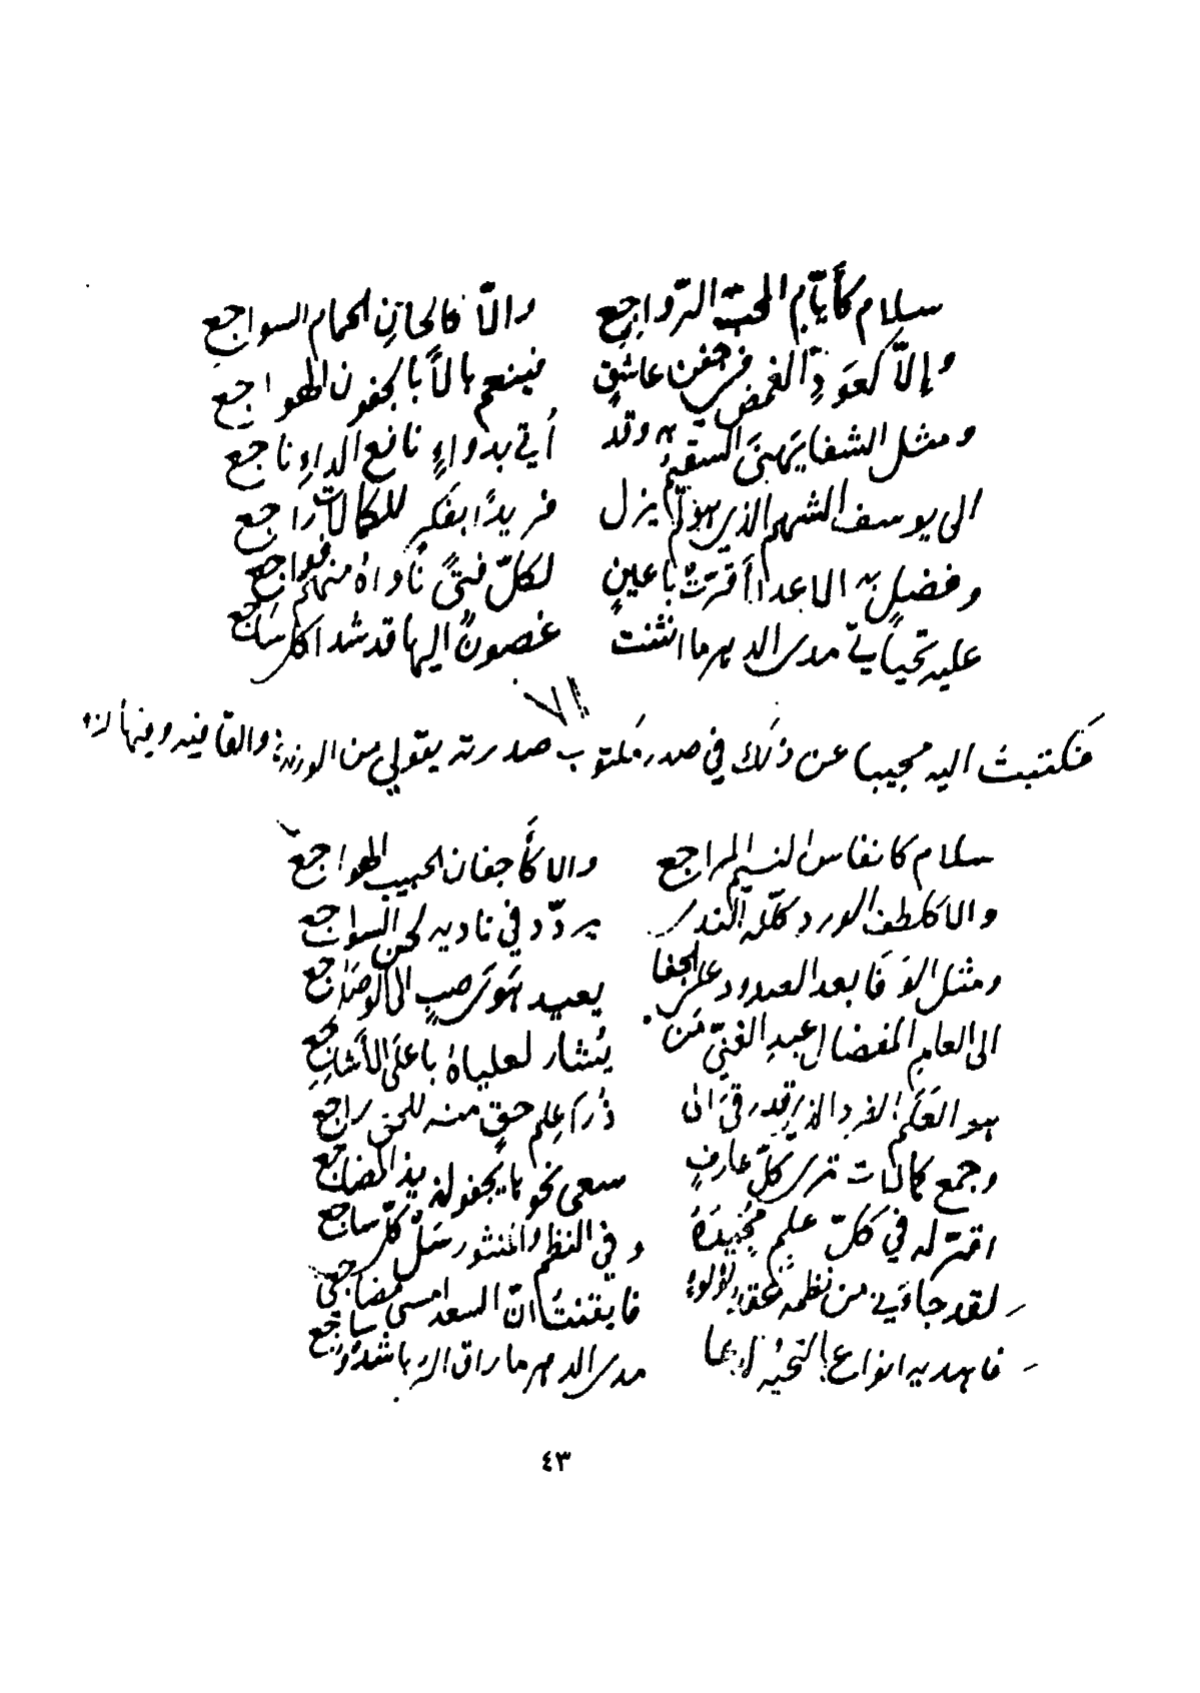 سلام كأيّام المحبّ الرّواجع والاّ كالحان الحمام السواجع
وإلاّ كعَودِ الغمض في جفن عاشقٍ فينعم بالاً بالجفون الهواجع
ومثل الشفا يَهنى السقيم به وقد أتي بدواءٍ نافع الداءِ ناجع
الى يوسف الشهم الذي هو لم يزل فريدًا بفكرٍ للكمالات راجع
وفضلٍ به الاعدا أقرّتْ باعينٍ لكلّ فتىً ناواهُ منهم فواجع
عليه تحياتي مدى الدهر ما انثنت غصونٌ اليها قد شدا كل ساجع
٧١
فكتبت اليه مجيبا عن ذلك في صدر مكتوب صدرته بقولي من الوزن والقافيه وفيها
سلام كانفاس النسيم المراجع والا كأجفان الحبيب الهواجع
والا كلطف الورد كلّله الندى يردّد في ناديه لحن السواجع
ومثل الوَفَا بعد الصدود على الجفا يعيد هَوَى صبٍ الى الوصل راجع
الى العالم المفضال عبد الغنيّ مَن يُشار لعلياهُ باعلى الأشاجع
هو العَلَم الفرد الذي قد رقى الى ذُرَى عِلم حقٍ منه للحق راجع
وجمع كمالات ترى كلّ عارفٍ سعى نحوها يجفو لذيذ المضاجع
اقرّ له في كلّ علم مُجيدُهُ وفي النظم والمنثور سَلْ كلّ ساجع
لقد جاءَني من نظمه عقد لؤلؤ فايقنتُ انّ السعد امسى مضاجعي
فاهديه انواع التحيّة دائما مدى الدهر ما راق الربا شدوُ ساجع
٤٣